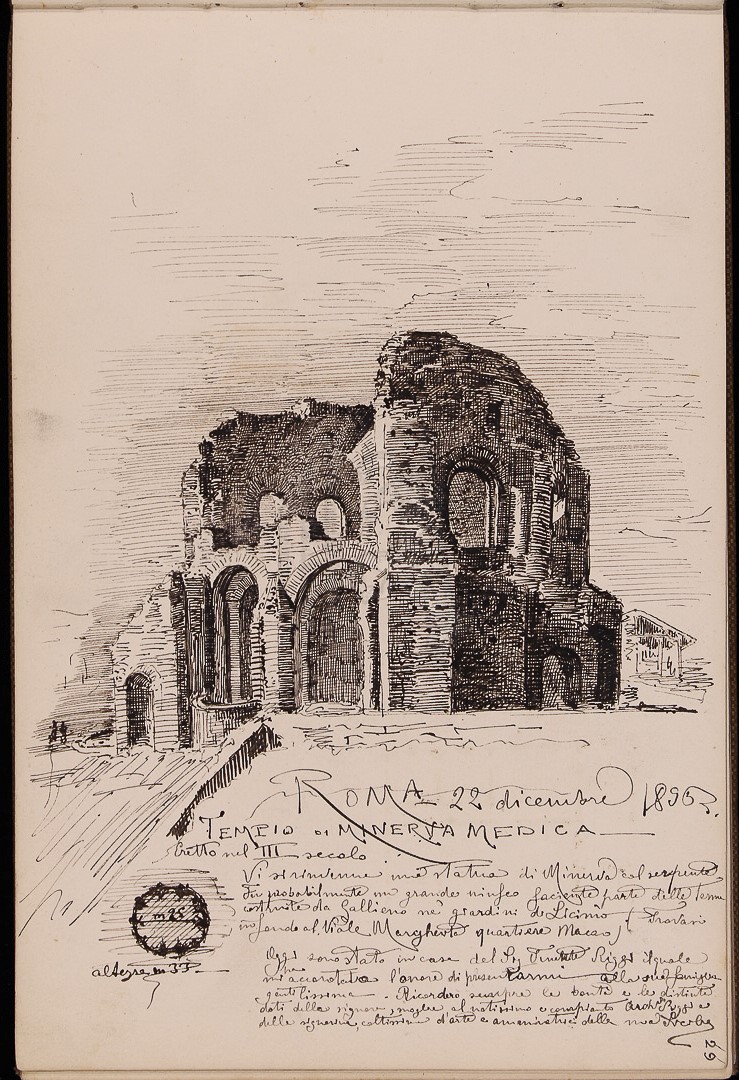 ROMA 22 dicembre 1893.
TEMPIO DI MINERVA MEDICA
Eretto nel III secolo
Vi si rinvenne una statua di Minerva col serpente.
Fu probabilmente un grande ninfeo facente parte delle Terme
costruite da Gallieno ne' giardini di Licinio (Trovasi
in fondo al Viale Margherita quartiere Macao)
m 25
altezza m 33
Oggi sono stato in casa del Sig Riggi il quale
mi ha accordato l'onore di presentarmi alla sua famiglia
gentilissima. Ricorderò sempre le bontà e le distinte
doti della signora, moglie al notissimo e compianto Archo
della signorina, coltissima d'arte e ammiratrice della mia
29